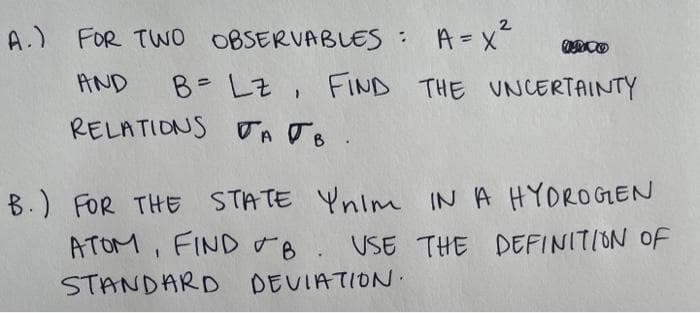 A.) FOR TWO OBSERVABLES : A = X²
AND B = LZ , FIND THE UNCERTAINTY
RELATIONS σA σB .
B.) FOR THE STATE Ψnlm IN A HYDROGEN
ATOM , FIND σB . USE THE DEFINITION OF
STANDARD DEVIATION .